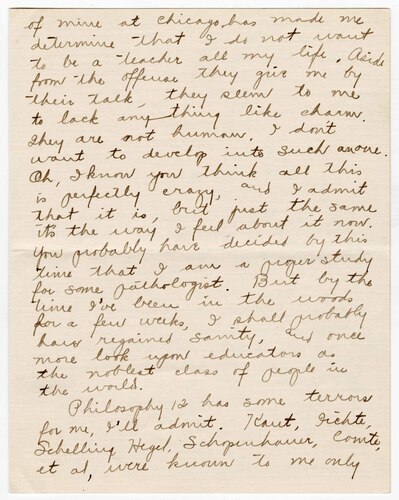 of mine at Chicago has made me
determine that I do not want
to be a teacher all my life. Aside
from the offense they give me by
their talk, they seem to me
to lack anything like charm.
They are not human. I don't
want to develop into such a one.
Oh, I know you think all this
is perfectly crazy, and I admit
that it is, but just the same
it's the way I feel about it now.
You probably have decided by this
time that I am a proper study
for some pathologist. But by the
time I've been in the woods
for a few weeks, I shall probably
have regained sanity, and once
more look upon educators as
the noblest class of people in
the world.
Philosophy 12 has some terrors
for me, I'll admit. Kant, Fichte,
Schelling Hegel, Schopenhauer, Comte,
et al, were known to me only